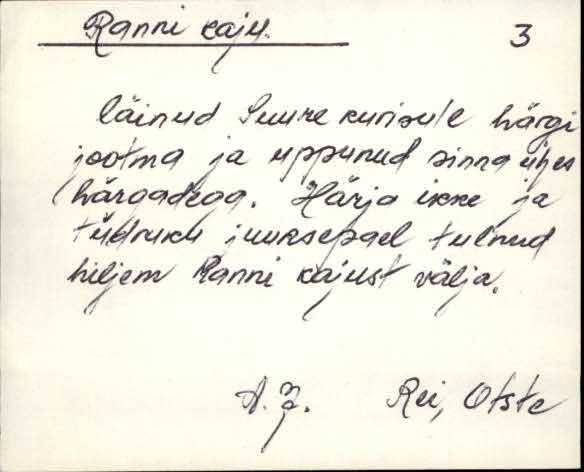 Ranni kaju.
3
läinud Suure kurisule härgi
jootma ja uppunud sinna ühes
härgadega. Härja ikke ja
tüdruku juuksepael tulnud
hiljem Ranni kajust välja.
A. J. Rei, Otste